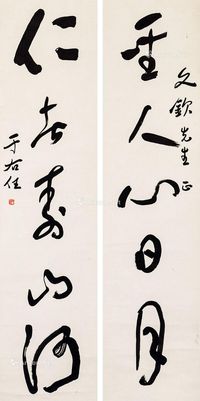 文欽先生正
聖人心日月
仁者壽山河
于右任